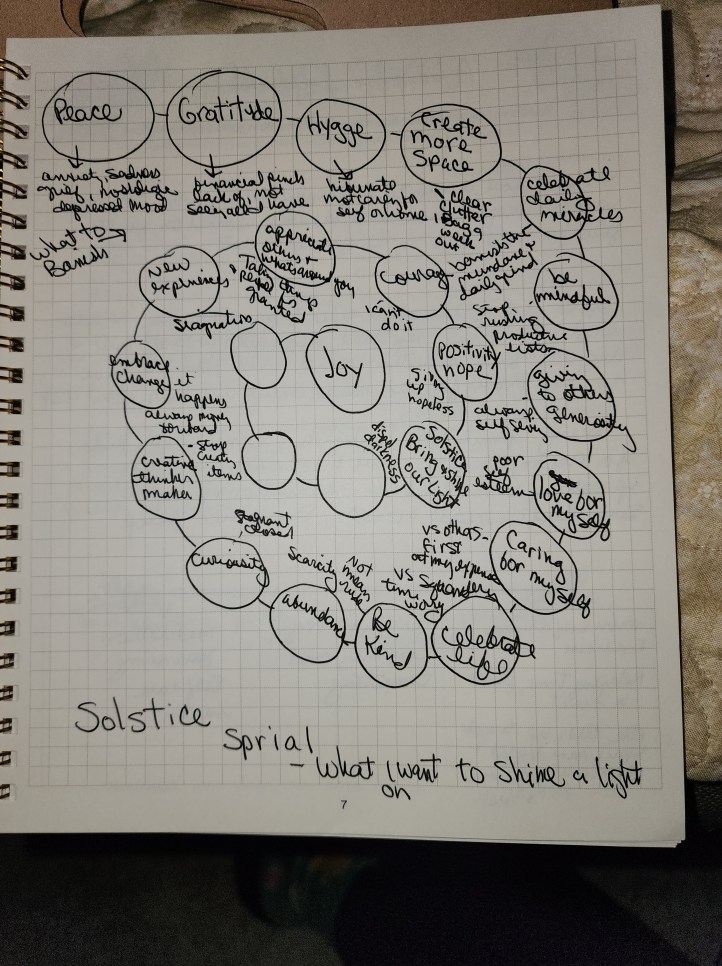 Peace
Gratitude
Hygge
Create
more
Space
celebrate
daily
miracles
be
mindful
giving
to others
generosity
love for
my self
Caring
for my self
celebrate
life
Be
Kind
abundance
curiousity
creative
thinker
maker
embrace
Change
new
expierines
appreciate
others +
whats around you
Courage
positivity
hope
Solstice
Bring + shine
our light
Joy
sadness
grief, nostalgia
depressed mood
What to →
Banish
financial pinch
lack of, not
have
not care for
self or home
clear
clutter
out
mundane +
daily grind
Taking things
for
granted
I cant
do it
stop
productive
lists
giving
up
hopeless
always
poor
self
esteem
dispel
darkness
it
happens
always
- stop
items
stagnant
closed
Scarcity
Not
mean
rude
vs others -
first
at my expense
vs
time
worry
Solstice
Sprial
- What I want to Shine a light
on
7